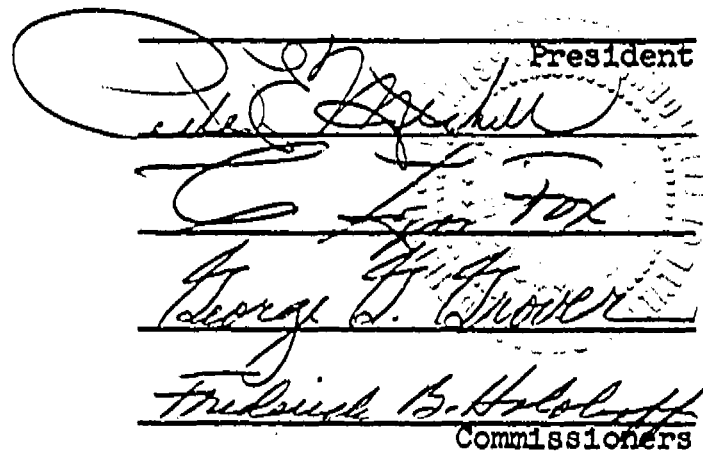 President
Peter E. Mitchell
C Lyn Fox
George G. Grover
Frederick B. Holoboff
Commissioners